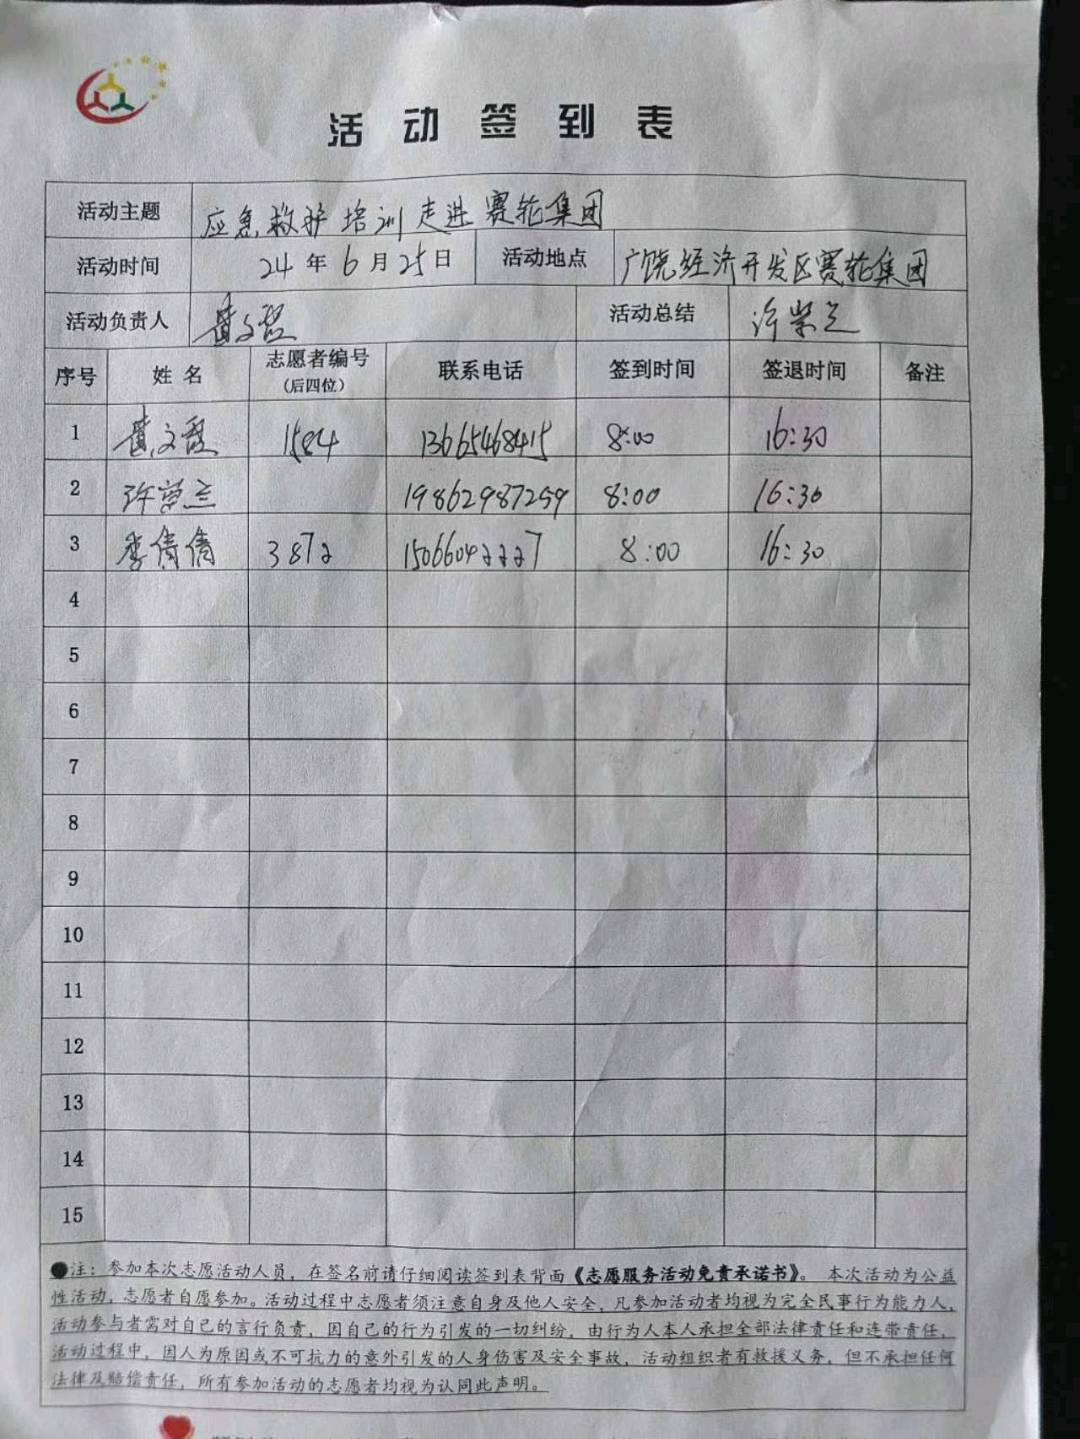 活动签到表
活动主题 应急救护培训走进赛轮集团
活动时间 24年6月25日 活动地点 广饶经济开发区赛轮集团
活动负责人 活动总结
序号 姓名 志愿者编号 (后四位) 联系电话 签到时间 签退时间 备注
1 1584 13665468415 8:00 16:30
2 19862987259 8:00 16:30
3 李倩倩 3872 15066042227 8:00 16:30
4
5
6
7
8
9
10
11
12
13
14
15
●注：参加本次志愿活动人员，在签名前请仔细阅读签到表背面《志愿服务活动免责承诺书》。本次活动为公益
性活动，志愿者自愿参加。活动过程中志愿者须注意自身及他人安全，凡参加活动者均视为完全民事行为能力人，
活动参与者需对自己的言行负责，因自己的行为引发的一切纠纷，由行为人本人承担全部法律责任和连带责任，
活动过程中，因人为原因或不可抗力的意外引发的人身伤害及安全事故，活动组织者有救援义务，但不承担任何
法律及赔偿责任，所有参加活动的志愿者均视为认同此声明。